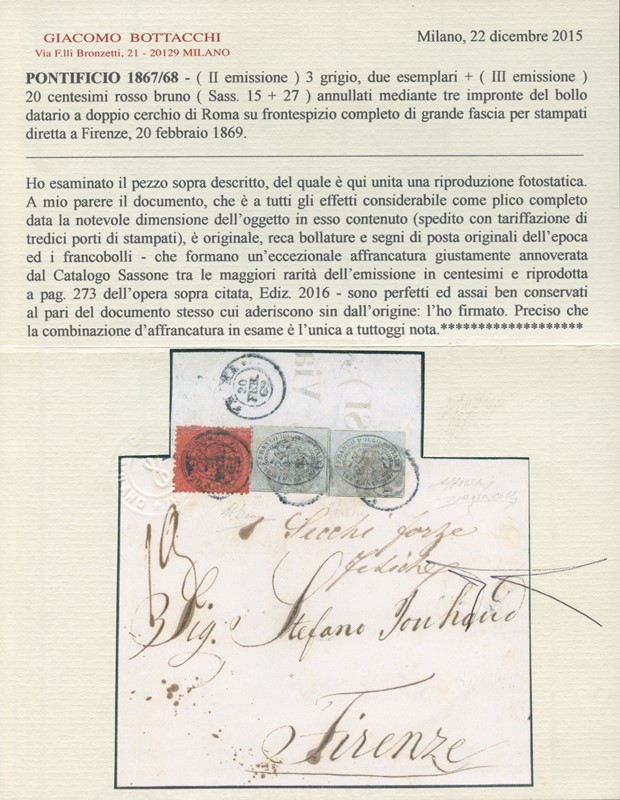 GIACOMO BOTTACCHI
Via F.lli Bronzetti, 21 - 20129 MILANO
Milano, 22 dicembre 2015
PONTIFICIO 1867/68 - ( II emissione ) 3 grigio, due esemplari + ( III emissione )
20 centesimi rosso bruno ( Sass. 15 + 27 ) annullati mediante tre impronte del bollo
datario a doppio cerchio di Roma su frontespizio completo di grande fascia per stampati
diretta a Firenze, 20 febbraio 1869.
Ho esaminato il pezzo sopra descritto, del quale è qui unita una riproduzione fotostatica.
A mio parere il documento, che è a tutti gli effetti considerabile come plico completo
data la notevole dimensione dell'oggetto in esso contenuto (spedito con tariffazione di
tredici porti di stampati), è originale, reca bollature e segni di posta originali dell'epoca
ed i francobolli - che formano un'eccezionale affrancatura giustamente annoverata
dal Catalogo Sassone tra le maggiori rarità dell'emissione in centesimi e riprodotta
a pag. 273 dell'opera sopra citata, Ediz. 2016 - sono perfetti ed assai ben conservati
al pari del documento stesso cui aderiscono sin dall'origine: l'ho firmato. Preciso che
la combinazione d'affrancatura in esame è l'unica a tuttoggi nota.*******************
20
FEB
69
Secchi forze
fisiche
Sig. Stefano Jouhaud
Firenze